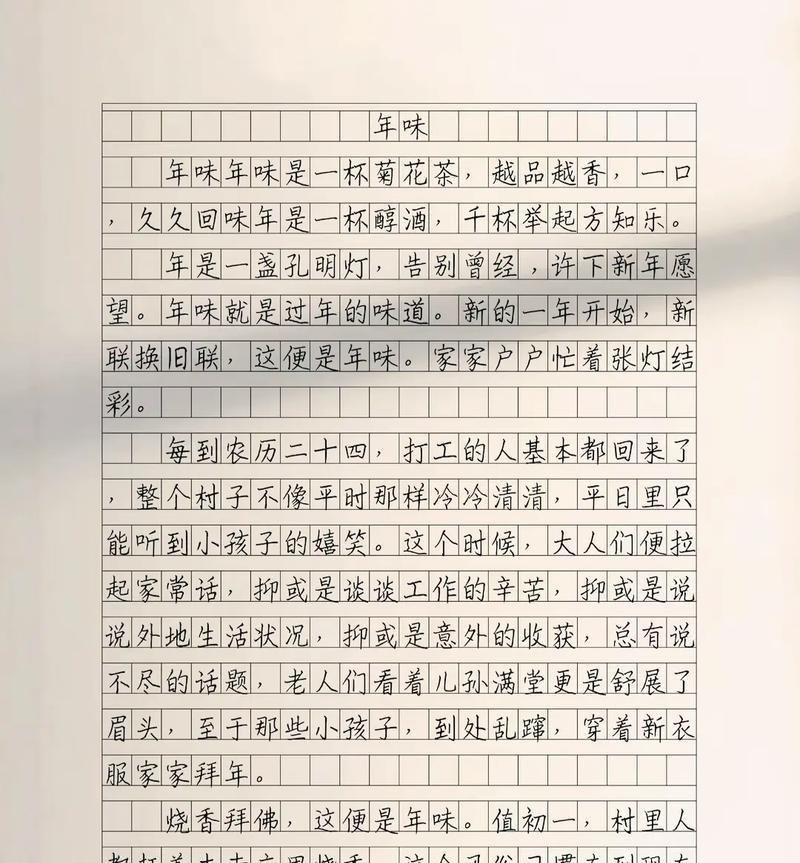 年味
年味年味是一杯菊花茶，越品越香，一口
，久久回味年是一杯醇酒，千杯举起方知乐。
年是一盏孔明灯，告别曾经，许下新年愿
望。年味就是过年的味道。新的一年开始，新
联换旧联，这便是年味。家家户户忙着张灯结
彩。
每到农历二十四，打工的人基本都回来了
，整个村子不像平时那样冷冷清清，平日里只
能听到小孩子的嬉笑。这个时候，大人们便拉
起家常话，抑或是谈谈工作的辛苦，抑或是说
说外地生活状况，抑或是意外的收获，总有说
不尽的话题，老人们看着儿孙满堂更是舒展了
眉头，至于那些小孩子，到处乱蹿，穿着新衣
服家家拜年。
烧香拜佛，这便是年味。值初一，村里人